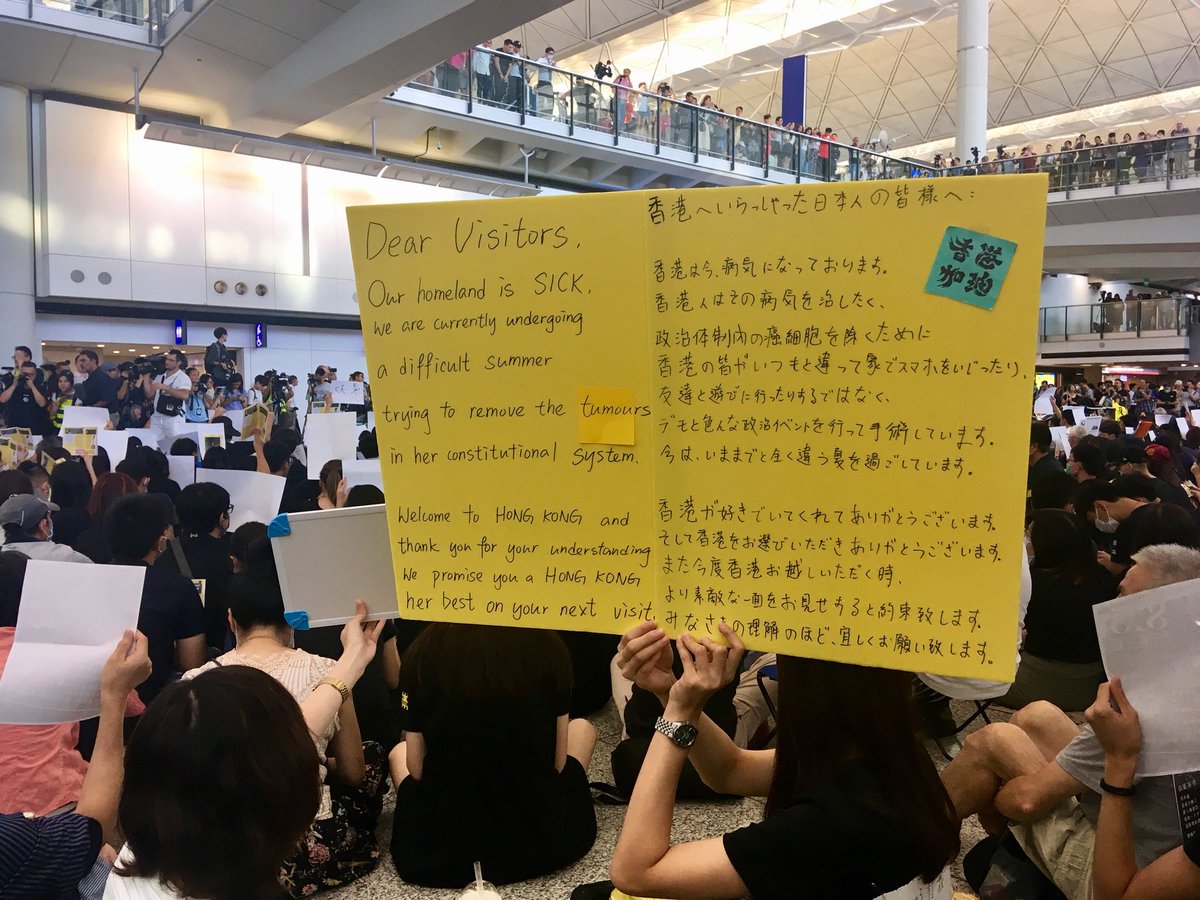 Dear Visitors,
Our homeland is SICK,
We are currently undergoing
a difficult summer
trying to remove the tumours
in her constitutional system.
Welcome to HONG KONG and
thank you for your understanding
We promise you a HONG KONG
her best on your next visit.
香港へいらっしゃった日本人の皆様へ:
香港加油
香港は今、病気になっております。
香港人はその病気を治したく、
政治体制内の癌細胞を除くために
香港の皆がいつもと違って家でスマホをいじったり、
友達と遊びに行ったりするではなく、
デモと色んな政治イベントを行って手術しています。
今は、いままでと全く違う夏を過ごしています。
香港が好きでいてくれてありがとうございます。
そして香港をお選びいただきありがとうございます。
また今度香港お越しいただく時、
より素敵な一面をお見せすると約束致します。
みなさまの理解のほど、宜しくお願い致します。